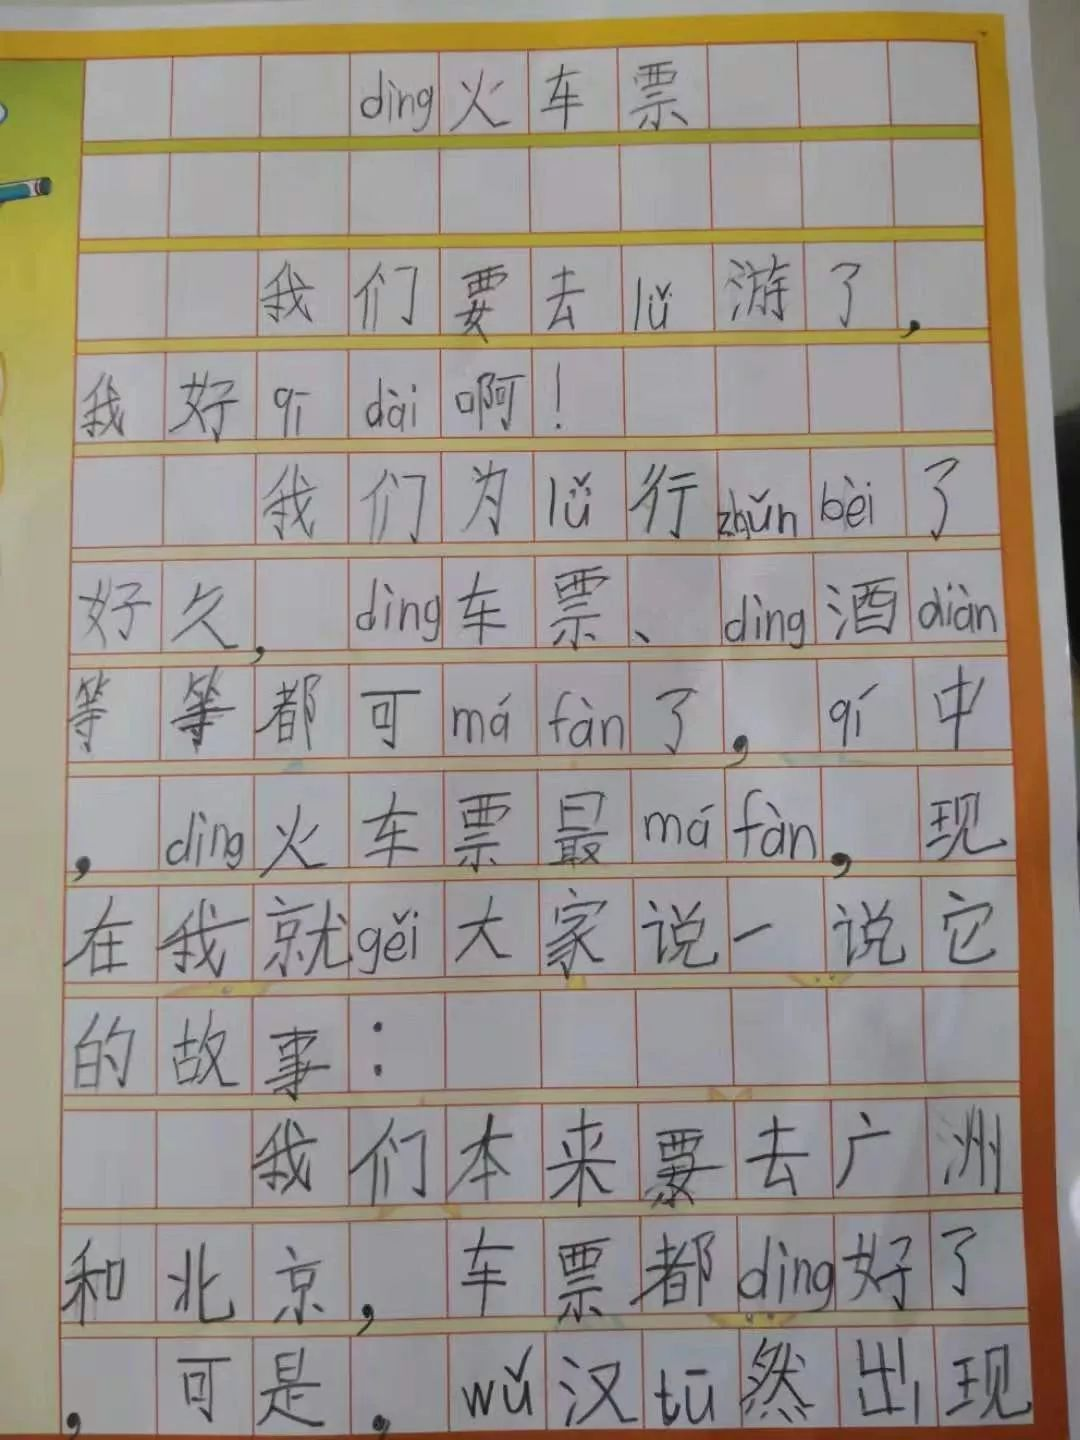 dìng火车票
我们要去lǚ游了，
我好qī dài啊！
我们为lǚ行zhǔn bèi了
好久，dìng车票、dìng酒diàn
等等都可má fàn了，qí中
，dìng火车票最má fàn，现
在我就gěi大家说一说它
的故事：
我们本来要去广洲
和北京，车票都dìng好了
，可是，wǔ汉tū然出现